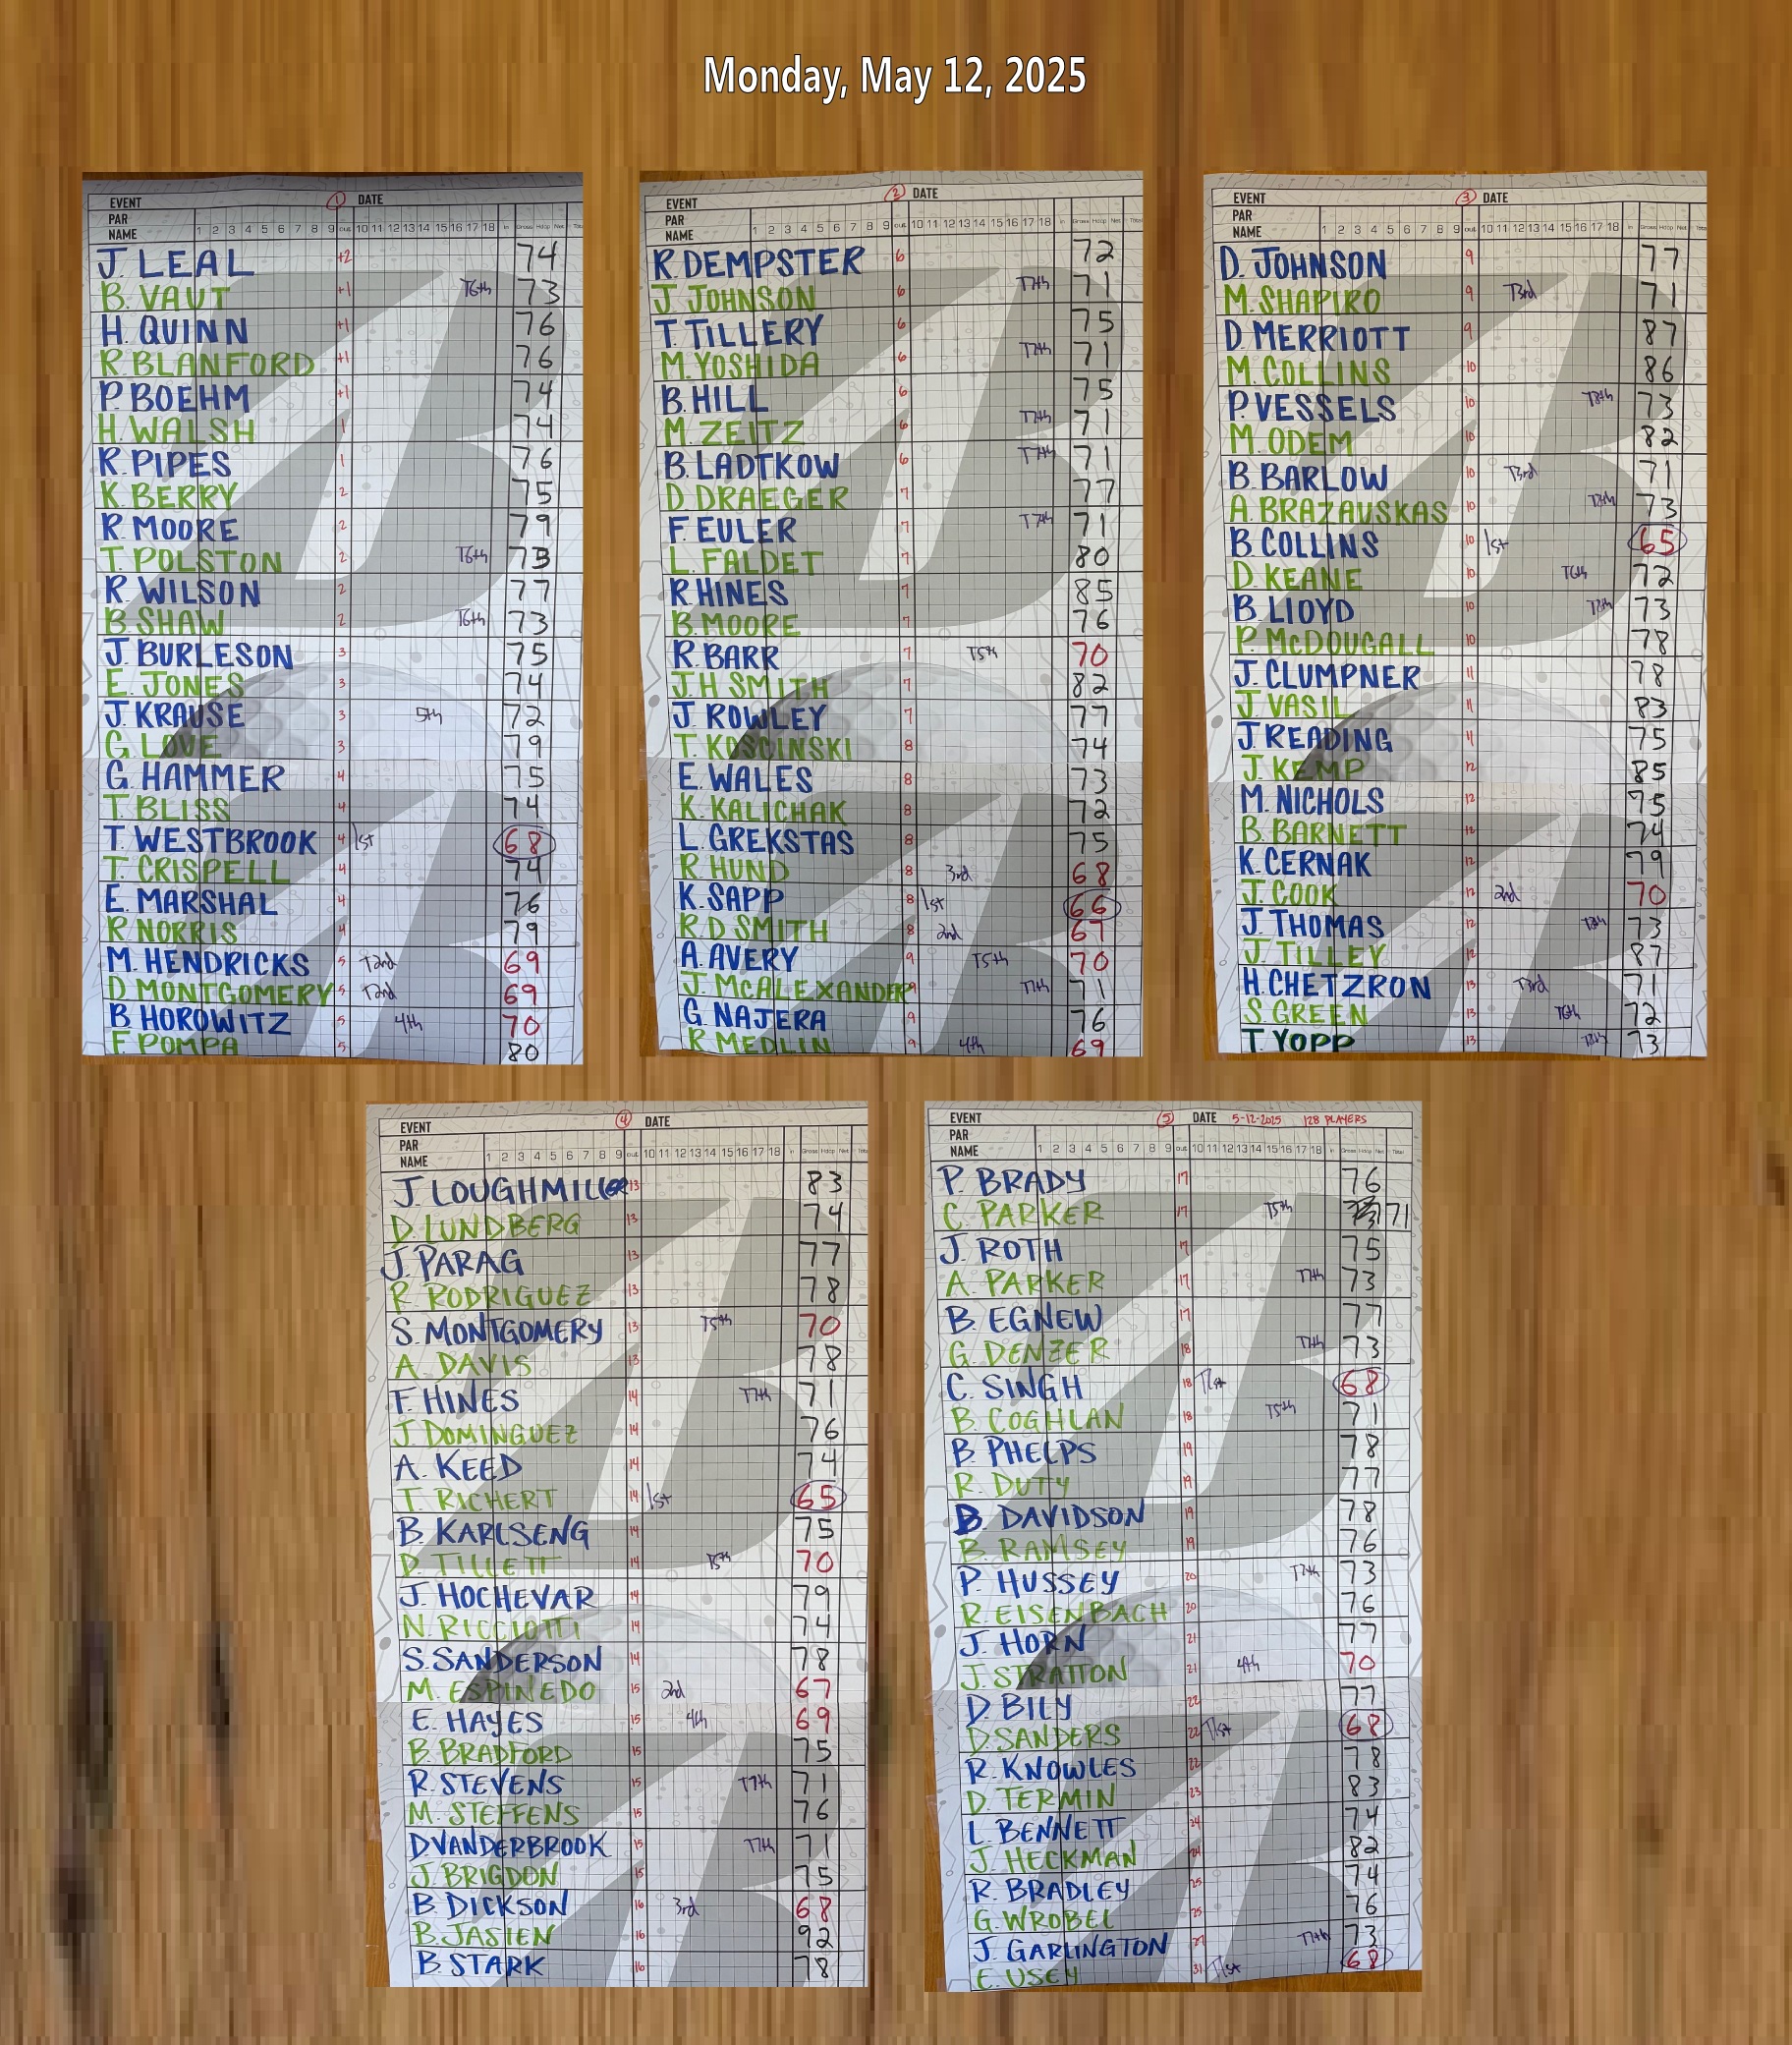 Monday, May 12, 2025
EVENT 1 DATE
PAR
NAME 1 2 3 4 5 6 7 8 9 out 10 11 12 13 14 15 16 17 18 in Gross Hdcp Net
J. LEAL +2 74
B. VAUT +1 T6th 73
H. QUINN +1 76
R. BLANFORD +1 76
P. BOEHM +1 74
H. WALSH 1 74
R. PIPES 1 76
K. BERRY 2 75
R. MOORE 2 79
T. POLSTON 2 T6th 73
R. WILSON 2 77
B. SHAW 2 T6th 73
J. BURLESON 3 75
E. JONES 3 74
J. KRAUSE 3 5th 72
G. LOVE 3 79
G. HAMMER 4 75
T. BLISS 4 74
T. WESTBROOK 4 1st 68
T. CRISPELL 4 74
E. MARSHAL 4 76
R. NORRIS 4 79
M. HENDRICKS 5 T2nd 69
D. MONTGOMERY 5 T2nd 69
B HOROWITZ 5 4th 70
F. POMPA 5 80
EVENT 2 DATE
PAR
NAME 1 2 3 4 5 6 7 8 9 out 10 11 12 13 14 15 16 17 18 in Gross Hdcp Net Total
R. DEMPSTER 6 72
J. JOHNSON 6 T7th 71
T. TILLERY 6 75
M. YOSHIDA 6 T7th 71
B. HILL 6 75
M. ZEITZ 6 T7th 71
B. LADTKOW 6 T7th 71
D. DRAEGER 7 77
F. EULER 7 T7th 71
L. FALDET 7 80
R HINES 7 85
B. MOORE 7 76
R. BARR 7 T5th 70
J.H SMITH 7 82
J. ROWLEY 7 77
T. KOSCINSKI 8 74
E. WALES 8 73
K. KALICHAK 8 72
L. GREKSTAS 8 75
R. HUND 8 3rd 68
K. SAPP 8 1st 66
R.D SMITH 8 2nd 67
A. AVERY 9 T5th 70
J. McALEXANDER 9 T7th 71
G. NAJERA 9 76
R MEDLIN 9 4th 69
EVENT 3 DATE
PAR
NAME 1 2 3 4 5 6 7 8 9 out 10 11 12 13 14 15 16 17 18 in Gross Hdcp Net Total
D. JOHNSON 9 77
M. SHAPIRO 9 T3rd 71
D. MERRIOTT 9 87
M. COLLINS 10 86
P. VESSELS 10 T8th 73
M. ODEM 10 82
B. BARLOW 10 T3rd 71
A. BRAZAUSKAS 10 T8th 73
B. COLLINS 10 1st 65
D. KEANE 10 T6th 72
B. LIOYD 10 T8th 73
P. McDOUGALL 10 78
J. CLUMPNER 11 78
J. VASIL 11 83
J. READING 11 75
J. KEMP 12 85
M. NICHOLS 12 75
B. BARNETT 12 74
K. CERNAK 12 79
J. COOK 12 2nd 70
J. THOMAS 12 T8th 73
J. TILLEY 12 87
H. CHETZRON 13 T3rd 71
S. GREEN 13 T6th 72
T. YOPP 13 T8th 73
EVENT 4 DATE
PAR
NAME 1 2 3 4 5 6 7 8 9 out 10 11 12 13 14 15 16 17 18 in Gross Hdcp Net Total
J. LOUGHMILLER 13 83
D. LUNDBERG 13 74
J. PARAG 13 77
R. RODRIGUEZ 13 78
S. MONTGOMERY 13 T5th 70
A. DAVIS 13 78
F. HINES 14 T7th 71
J. DOMINGUEZ 14 76
A. KEED 14 74
T. RICHERT 14 1st 65
B. KARLSENG 14 75
D. TILLETT 14 T5th 70
J. HOCHEVAR 14 79
N. RICCIOTTI 14 74
S. SANDERSON 14 78
M. ESPINEDO 15 2nd 67
E. HAYES 15 4th 69
B. BRADFORD 15 75
R. STEVENS 15 T7th 71
M. STEFFENS 15 76
D VANDERBROOK 15 T7th 71
J. BRIGDON 15 75
B. DICKSON 16 3rd 68
B. JASIEN 16 92
B STARK 16 78
EVENT 5 DATE 5-12-2025 128 PLAYERS
PAR
NAME 1 2 3 4 5 6 7 8 9 out 10 11 12 13 14 15 16 17 18 in Gross Hdcp Net Total
P. BRADY 17 76
C. PARKER 17 T5th 71
J. ROTH 17 75
A. PARKER 17 T7th 73
B. EGNEW 17 77
G. DENZER 18 T7th 73
C. SINGH 18 T1st 68
B. COGHLAN 18 T5th 71
B. PHELPS 19 78
R. DUTY 19 77
B. DAVIDSON 19 78
B. RAMSEY 19 76
P. HUSSEY 20 T7th 73
R. EISENBACH 20 76
J. HORN 21 77
J. STRATTON 21 4th 70
D. BILY 22 77
D. SANDERS 22 T1st 68
R. KNOWLES 22 78
D. TERMIN 23 83
L. BENNETT 24 74
J. HECKMAN 24 82
R. BRADLEY 25 74
G. WROBEL 25 76
J. GARLINGTON 27 T7th 73
E. USEY 31 T1st 68